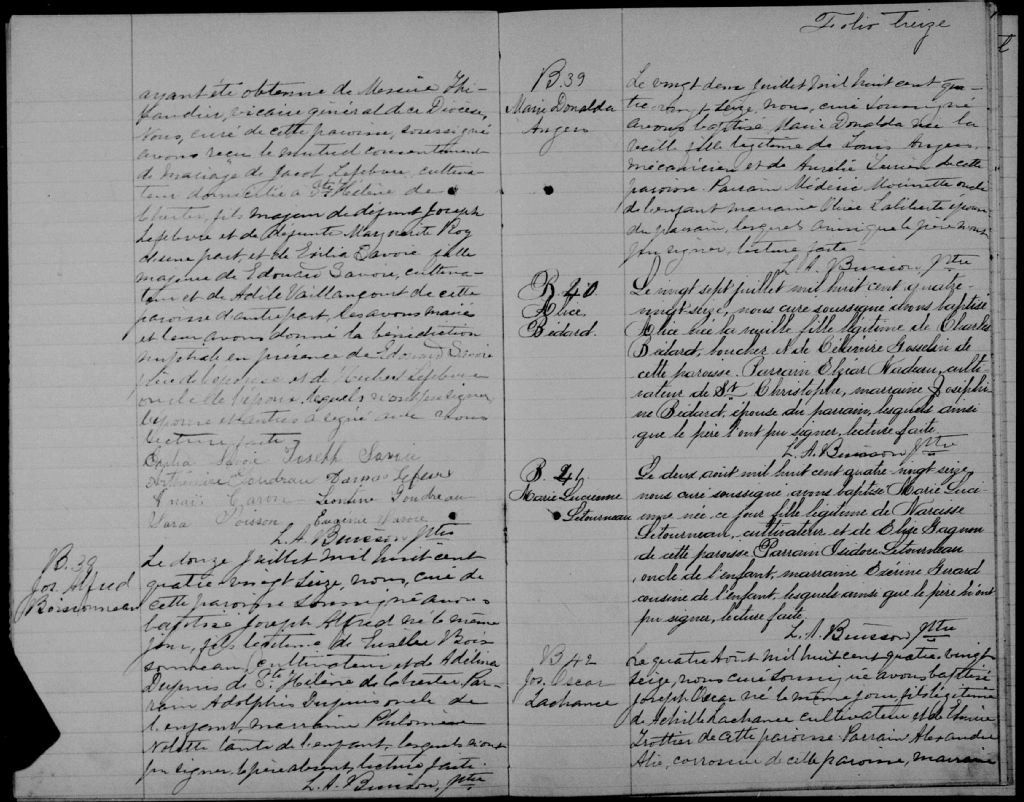 ayant été obtenue de Messire Thi-
baudier, vicaire général de ce Diocèse,
Nous, curé de cette paroisse, soussigné
avons reçu le mutuel consentement
de mariage de Jacob Lefebvre, cultiva-
teur domicilié à Ste Hélène de
Chester, fils majeur de défunt Joseph
Lefebvre et de défunte Marguerite Roy
d'une part, et de Exilia Savoie fille
majeure de Edouard Savoie, cultiva-
teur et de Adile Vaillancourt de cette
paroisse d'autre part, les avons mariés
et leur avons donné la bénédiction
nuptiale en présence de Edouard Savoie
père de l'épouse et de Hubert Lefebvre
oncle de l'époux, lesquels n'ont pu signer,
l'épouse et autres a signé avec nous
lecture faite
Exilia Savoie Joseph Savoie
Arthémise Goudreau Damas Lefebvre
Anaïs Caron Léontine Goudreau
Poisson Eugénie Savoie
L. A. Buisson Ptre
B. 39
Jos. Alfred
Boissonneau
Le douze Juillet mil huit cent
quatre vingt seize, nous, curé de
cette paroisse soussigné avons
baptisé Joseph Alfred né le même
jour, fils légitime de Bois
sonneau, cultivateur et de Adélina
Dupuis de Ste Hélène de Chester, Par-
rain Adolphis Dupuis oncle de
l'enfant, marraine Philomène
Nolette tante de l'enfant, lesquels n'ont
pu signer, le père absent, lecture faite.
L. A. Buisson, Ptre
Folio treize
B. 39
Marie Donalda
Angers
Le vingt deux Juillet mil huit cent qua-
tre vingt seize, nous, curé soussigné
avons baptisé Marie Donalda née la
veille fille légitime de Louis Angers,
mécanicien et de Aurélie de cette
paroisse. Parrain Médéric oncle
de l'enfant marraine Olive Laliberté épouse
du parrain, lesquels ainsi que le père n'ont
pu signer, lecture faite.
L. A. Buisson, Ptre
B. 40.
Alice.
Bédard.
Le vingt sept juillet mil huit cent quatre-
vingt-seize, nous curé soussigné avons baptisé
Alice née la veille fille légitime de Charles
Bédard, boucher et de Célénire Gosselin de
cette paroisse. Parrain Elzéar Nadeau, culti-
vateur de St. Christophe, marraine Joséphi-
ne Bédard, épouse du parrain, lesquels ainsi
que le père n'ont pu signer, lecture faite.
L. A. Buisson Ptre
B. 41.
Marie Lucienne
Létourneau
Le deux août mil huit cent quatre-vingt seize
nous curé soussigné, avons baptisé Marie Luci-
enne née ce jour fille légitime de Narcisse
Létourneau, cultivateur et de Elise Gagnon
de cette paroisse Parrain Isidore Létourneau
oncle de l'enfant, marraine Exérine Girard
cousine de l'enfant, lesquels ainsi que le père n'ont
pu signer, lecture faite.
L. A. Buisson Ptre
B 42
Jos. Oscar
Lachance
Le quatre Août mil huit cent quatre-vingt
seize, nous curé soussigné avons baptisé
Joseph Oscar né le même jour fils légitime
de Achille Lachance cultivateur et de
Trottier de cette paroisse Parrain Alexandre
de cette paroisse, marraine